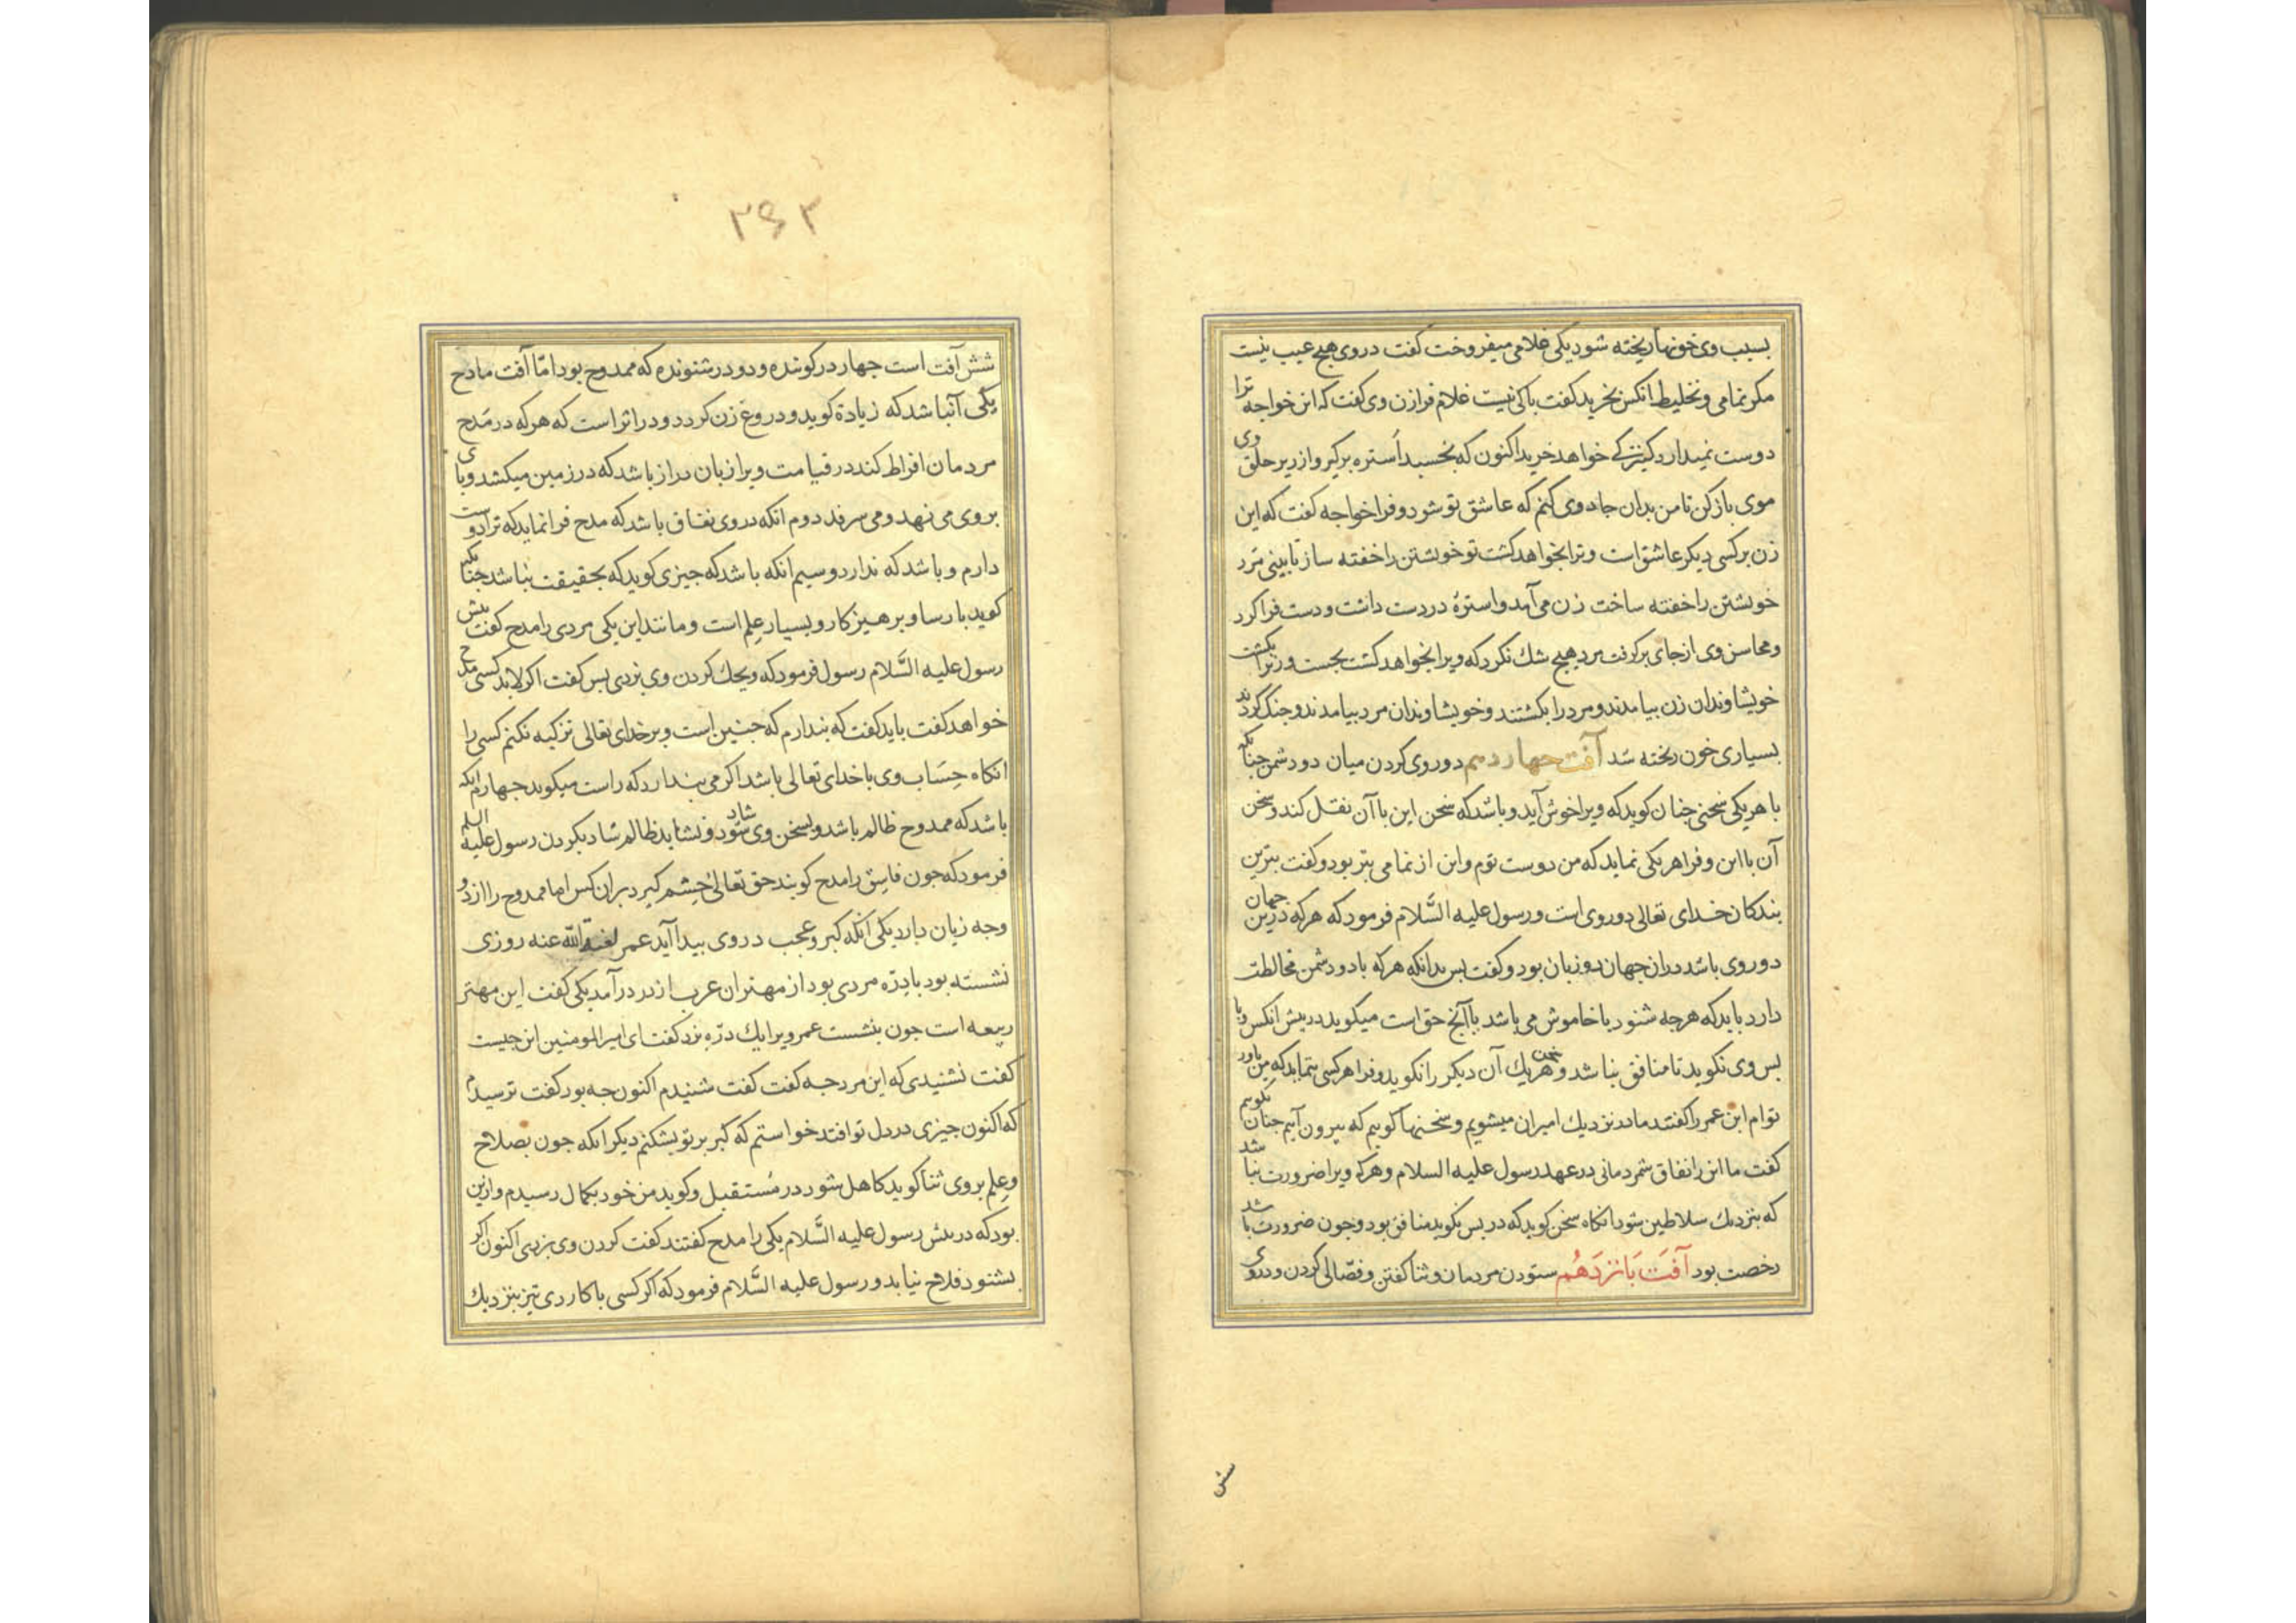 بسبب وی خونها ریخته شود یکی غلامی میفروخت کفت در وی هیچ عیب نیست
مکر نمامی و تخلیط انکس بخرید کفت باکی نیست غلام فرا زن وی کفت که این خواجه ترا
دوست نمیدارد کنیزکی خواهد خرید اکنون که بخسبد استره برکیر و از زیر حلق وی
موی باز کن تا من بدان جادوی کنم که عاشق تو شود و فرا خواجه کفت که این
زن بر کسی دیکر عاشق است و ترا بخواهد کشت تو خویشتن را خفته ساز تا بینی مرد
خویشتن را خفته ساخت زن می آمد و استرهٔ در دست داشت و دست فرا کرد
و محاسن وی از جای برکرفت مرد هیچ شك نکرد که ویرا بخواهد کشت بجست و زنرا بکشت
خویشاوندان زن بیامدند و مرد را بکشتند و خویشاوندان مرد بیامدند و جنك کردند
بسیاری خون ریخته شد آفت چهاردهم دوروی کردن میان دو دشمن چنانکه
با هر یکی سخنی چنان کوید که ویرا خوش آید و باشد که سخن این با آن نقل کند و سخن
آن با این و فرا هر یکی نماید که من دوست توم و این از نمامی بتر بود و کفت بترین
بندکان خدای تعالی دوروی است و رسول علیه السَّلام فرمود که هر که درین جهان
دوروی باشد دران جهان دو زبان بود و کفت بس بدانکه هر که با دو دشمن مخالطت
دارد باید که هرچه شنود یا خاموش می باشد یا آنچ حق است میکوید در پیش انکس و یا
بس وی نکوید تا منافق نباشد و سخن هر یك آن دیکر را نکوید و فرا هر کسی ننماید که من یاور
توام ابن عمر را کفتند ما در نزدیك امیران میشویم و سخنها کوییم که بیرون آییم چنان نکوییم
کفت ما این را نفاق شمردمانی در عهد رسول علیه السلام و هر که ویرا ضرورت نباشد
که بنزدیك سلاطین شود انکاه سخن کوید که در بس نکوید منافق بود و چون ضرورت باشد
رخصت بود آفَت پَانزَدَهُم ستودن مردمان و ثنا کفتن و فصّالی کردن و در وی
شش
۲۶۳
شش آفت است جهار در کوینده و دو در شنونده که ممدوح بود امّا آفت مادح
یکی آنباشد که زیادة کوید و دروغ زن کردد و در اثر است که هر که در مَدح
مردمان افراط کند در قیامت ویرا زبان دراز باشد که در زمین میکشد و پای
بر وی می نهد و می سرفد دوم انکه در وی نفاق باشد که مدح فرا نماید که ترا دوست
دارم و باشد که ندارد و سیم انکه باشد که چیزی کوید که بحقیقت نباشد چنانکه
کوید پارسا و پرهیزکار و بسیار عِلم است و مانند این یکی مردی را مدح کفت پیش
رسول علیه السَّلام رسول فرمود که ویحك کردن وی بزدی بس کفت اکر لابد کسی مدح
خواهد کفت باید کفت که پندارم که چنین است و بر خدای تعالی تزکیه نکنم کسی را
انکاه حِسَاب وی با خدای تعالی باشد اکر می پندارد که راست میکوید جهارم انکه
باشد که ممدوح ظالم باشد و بسخن وی شاد شود و نشاید ظالم شاد بکردن رسول علیه السلم
فرمود که جون فاسِق را مدح کویند حق تعالی خشم کیرد بران کس اما ممدوح را از دو
وجه زیان دارد یکی انکه کبر و عجب در وی پیدا آید عمر الله عنه روزی
نشسته بود با دِرّه مردی بود از مهتران عرب از در درآمد یکی کفت این مهتر
ربیعه است جون بنشست عمر ویرا یك درّه بزد کفت ای امیرالمومنین این چیست
کفت نشنیدی که این مرد جه کفت کفت شنیدم اکنون جه بود کفت ترسیدم
که اکنون چیزی در دل تو افتد خواستم که کبر بر تو بشکنم دیکر انکه جون بصلاح
و عِلم بر وی ثنا کوید کاهل شود در مُستقبل و کوید من خود بکمال رسیدم و ازین
بود که در پیش رسول علیه السَّلام یکی را مدح کفتند کفت کردن وی بزدی اکنون اکر
بشنود فلاح نیابد و رسول علیه السَّلام فرمود که اکر کسی با کاردی تیز بنزدیك